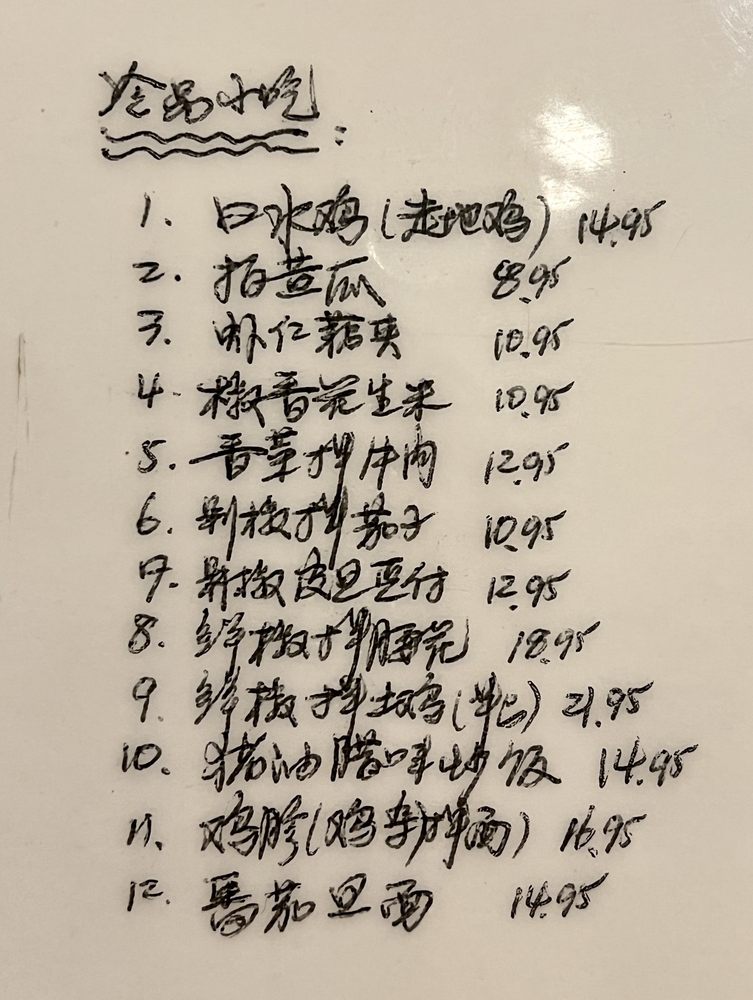 冷品小吃:
1. 口水鸡(走地鸡) 14.95
2. 拍黄瓜 8.95
3. 虾仁藕夹 10.95
4. 椒香花生米 10.95
5. 香菜拌牛肉 12.95
6. 剁椒拌茄子 10.95
7. 剁椒皮旦豆付 12.95
8. 鲜椒拌腰花 18.95
9. 鲜椒拌土鸡(半只) 21.95
10. 猪油腊味炒饭 14.95
11. 鸡胗(鸡杂拌面) 16.95
12. 番茄旦面 14.95